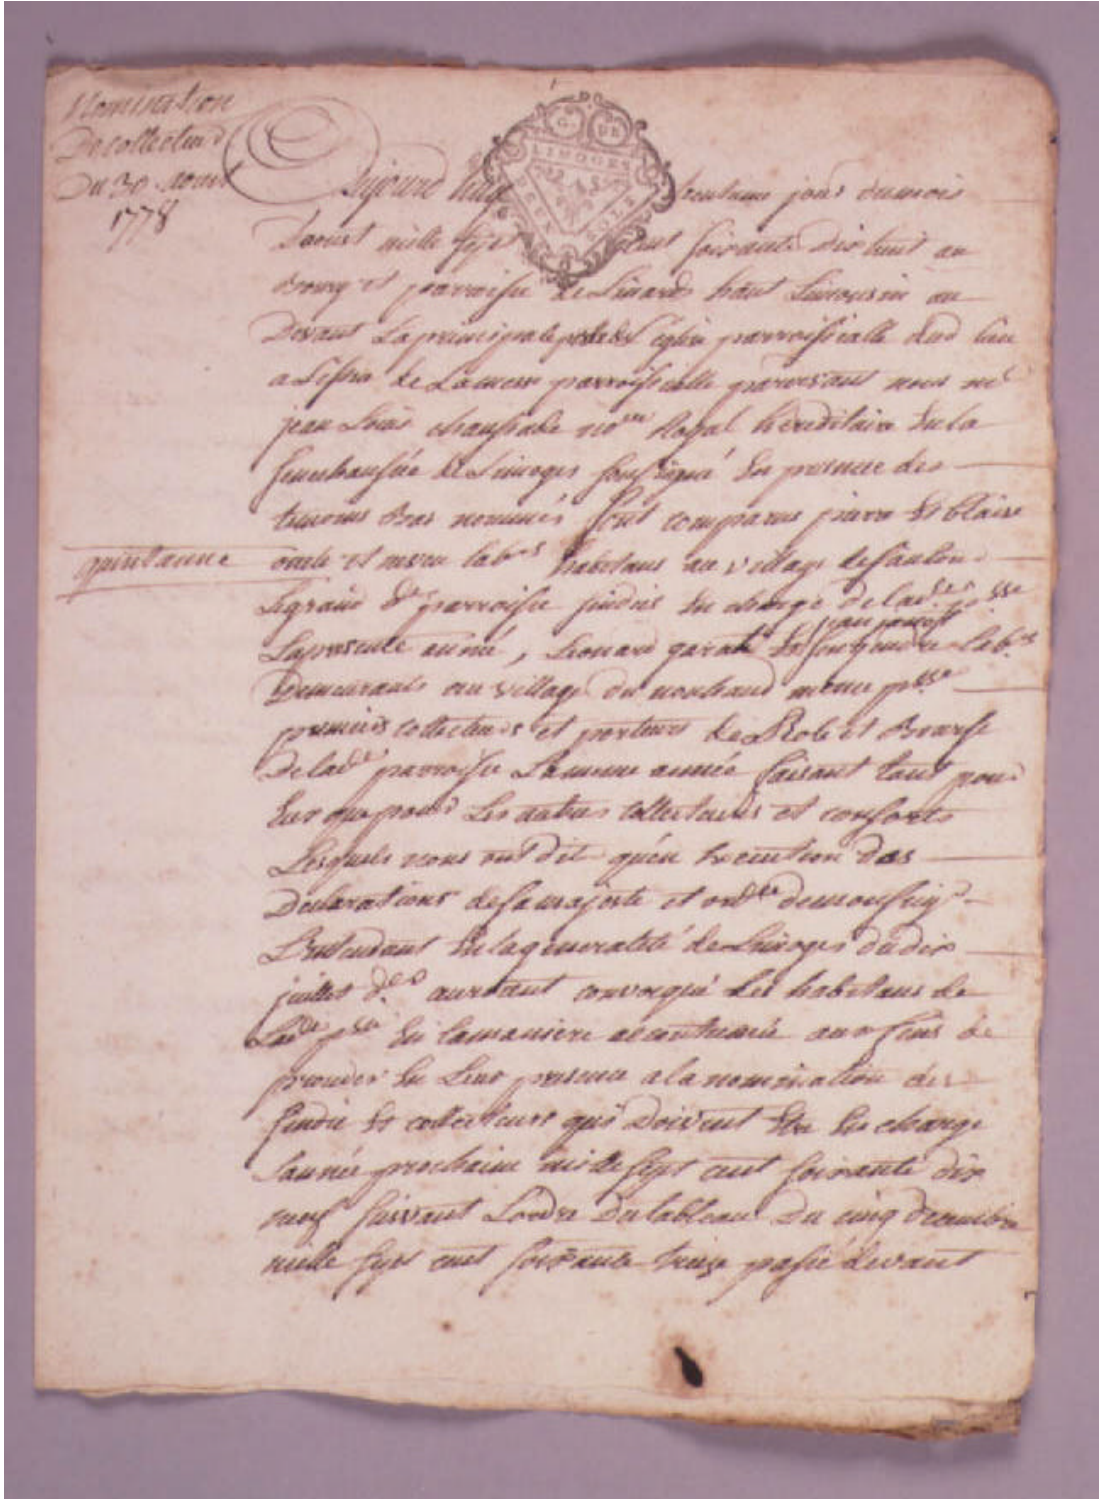 Nomination
De collecteurs
Du 30 Aoust
1778
G. DE
LIMOGES
Aujourd'huy trentieme jour du mois
Daoust mille sept cent soixante dix huit au
Bourg et parroisse de Linards haut Limousin au
Devant La principale porte de L'eglise parroissialle dud lieu
a L'issue de La messe parroissialle pardevant nous me
jean Louis chaussade nore Royal hereditaire en la
senechaussée de Limoges soussigné en presence des
temoins Bas nommés sont comparus pierre et blaise
quintanne
oncle et neveu labrs habitans au village de
Legrand de parroisse sindics en charge de lade psse
La presente année, Leonard garat et jean son gendre labrs
Demeurants au village du nouhaud meme psse
premiers collecteurs et porteurs de Role et Bource
De lade parroisse La meme année faisant tant pour
eux que pour Les autres collecteurs et consorts
Lesquels nous ont dit qu'en execution des
Declarations de sa majesté et ordce de monseigr
L'intendant en la generalité de Limoges du dix
juillet der auroient convoqué Les habitans de
Lade psse en la maniere accoutumée aux fins de
proceder en Leur presence a la nomination des
sindic et collecteurs qui Doivent etre en charge
L'année prochaine mille sept cent soixante dix
neuf suivant L'ordre Du tableau Du cinq decembre
mille sept cent soixante treize passé devant